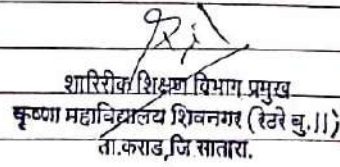 शारिरीक शिक्षण विभाग प्रमुख
कृष्णा महाविद्यालय शिवनगर (रेठरे बु.||)
ता.कराड,जि सातारा.